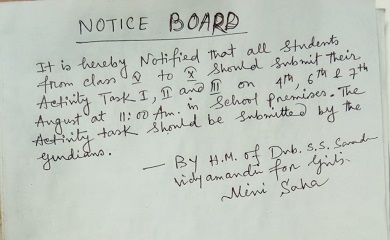 NOTICE BOARD
It is hereby Notified that all students
from class V to X should submit their
Activity Task I, II and III on 4th, 6th & 7th
August at 11:00 Am. in School premises. The
Activity task should be submitted by the
gurdians.
— By H.M. of Dnb. S.S. Samdu
vidyamandir for Girls.
Mini Saha